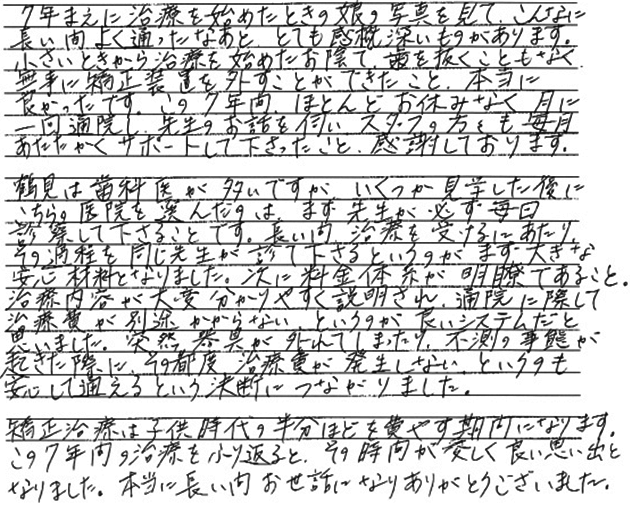 7年まえに治療を始めたときの娘の写真を見て、こんなに
長い間よく通ったなあと、とても感慨深いものがあります。
小さいときから治療を始めたお陰で、歯を抜くこともなく
無事に矯正装置を外すことができたこと、本当に
良かったです。この7年間、ほとんどお休みなく月に
一回通院し、先生のお話を伺い、スタッフの方々も毎月
あたたかくサポートして下さったこと、感謝しております。
鶴見は歯科医が多いですが、いくつか見学した後に
こちらの医院を選んだのは、まず先生が必ず毎回
診察して下さることです。長い間、治療を受けるにあたり
その過程を同じ先生が診て下さるというのがまず大きな
安心材料となりました。次に料金体系が明瞭であること。
治療内容が大変分かりやすく説明され、通院に際して
治療費が別途かからない、というのが良いシステムだと
思いました。突然器具が外れてしまったり、不測の事態が
起きた際に、その都度治療費が発生しない、というのも
安心して通えるという決断につながりました。
矯正治療は子供時代の半分ほどを費やす期間になります。
この7年間の治療をふり返ると、その時間が愛しく良い思い出と
なりました。本当に長い間お世話になりありがとうございました。